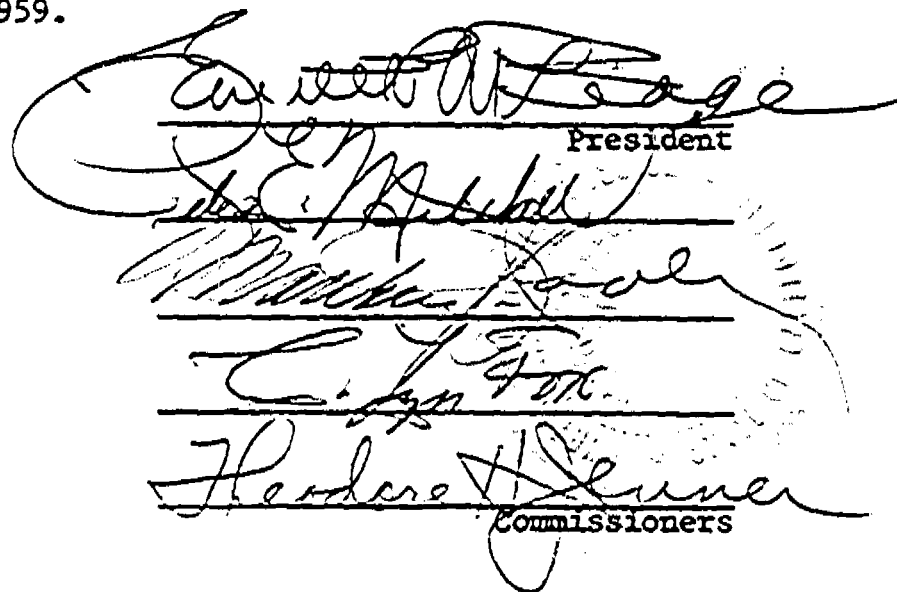 959.
Everett
President
E. Mitchell
Matthew Dooley
C. Lyn Fox.
Theodore H Jenner
Commissioners